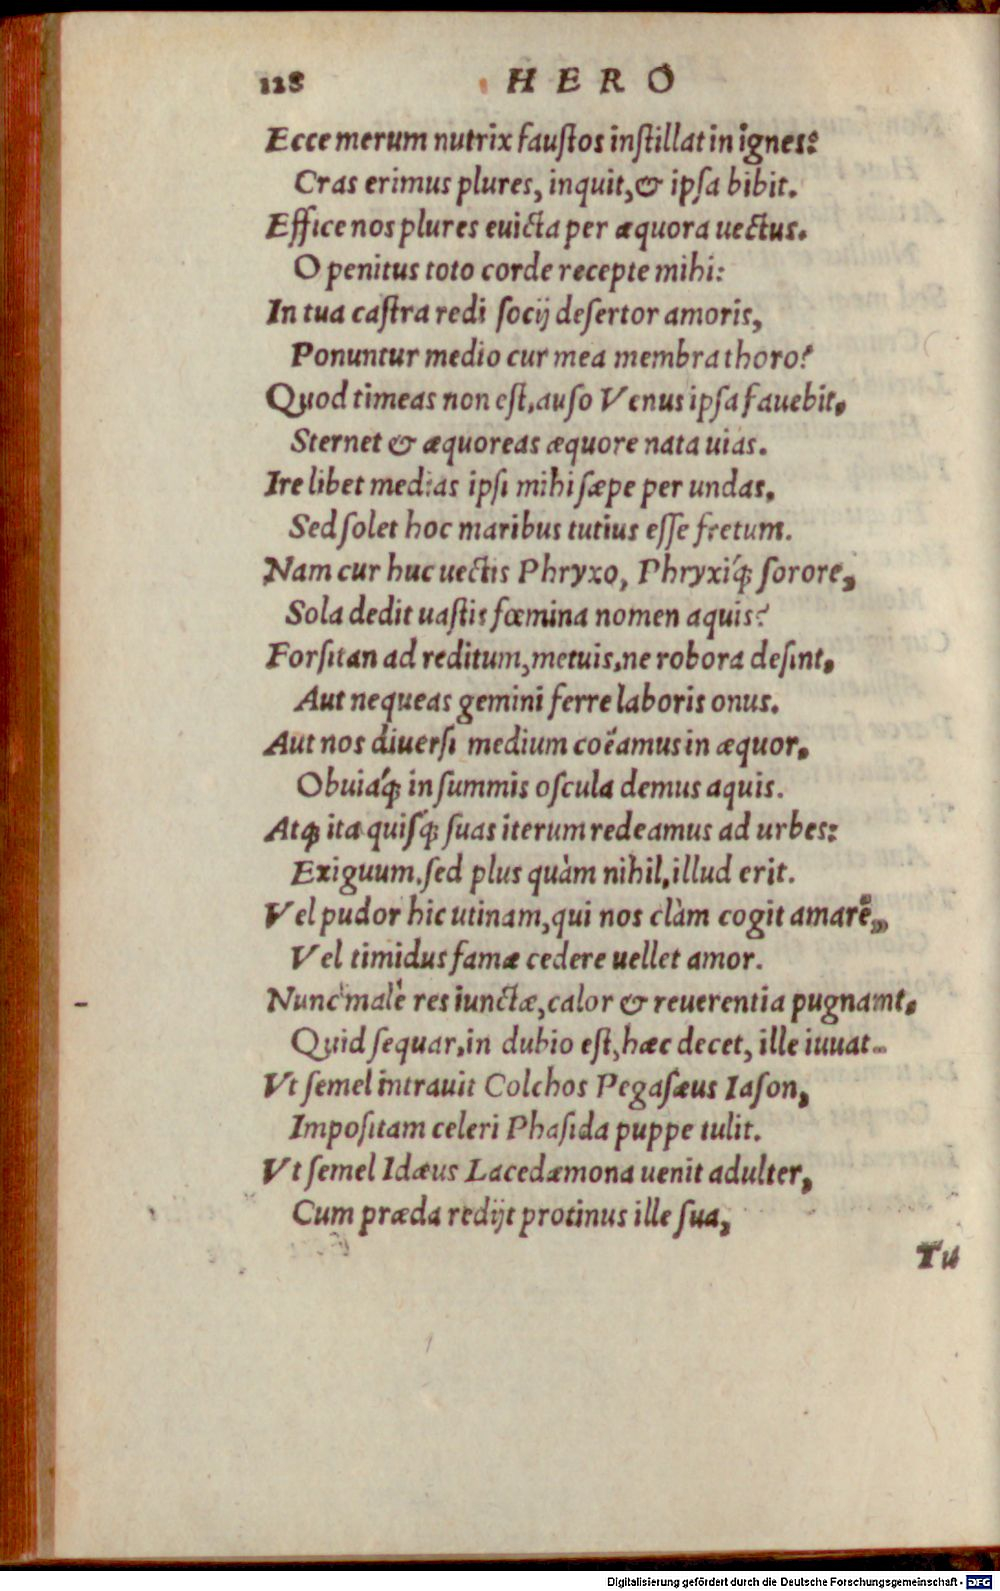 128 HERO
Ecce merum nutrix fauſtos inſtillat in ignes:
Cras erimus plures, inquit, & ipſa bibit.
Effice nos plures euicta per æquora uectus.
O penitus toto corde recepte mihi:
In tua caſtra redi ſocij deſertor amoris,
Ponuntur medio cur mea membra thoro?
Quod timeas non eſt, auſo Venus ipſa fauebit,
Sternet & æquoreas æquore nata uias.
Ire libet medias ipſi mihi ſæpe per undas,
Sed ſolet hoc maribus tutius eſſe fretum.
Nam cur huc uectis Phryxo, Phryxiq́; ſorore,
Sola dedit uaſtis fœmina nomen aquis?
Forſitan ad reditum, metuis, ne robora deſint,
Aut nequeas gemini ferre laboris onus.
Aut nos diuerſi medium coëamus in æquor,
Obuiaq́; in ſummis oſcula demus aquis.
Atq; ita quiſq́; ſuas iterum redeamus ad urbes:
Exiguum, ſed plus quàm nihil, illud erit.
Vel pudor hic utinam, qui nos clàm cogit amare,
Vel timidus famæ cedere uellet amor.
Nunc malè res iunctæ, calor & reuerentia pugnant,
Quid ſequar, in dubio eſt, hæc decet, ille iuuat.
Vt ſemel intrauit Colchos Pegaſæus Iaſon,
Impoſitam celeri Phaſida puppe tulit.
Vt ſemel Idæus Lacedæmona uenit adulter,
Cum præda redijt protinus ille ſua,
Tu
Digitalisierung gefördert durch die Deutsche Forschungsgemeinschaft - DFG